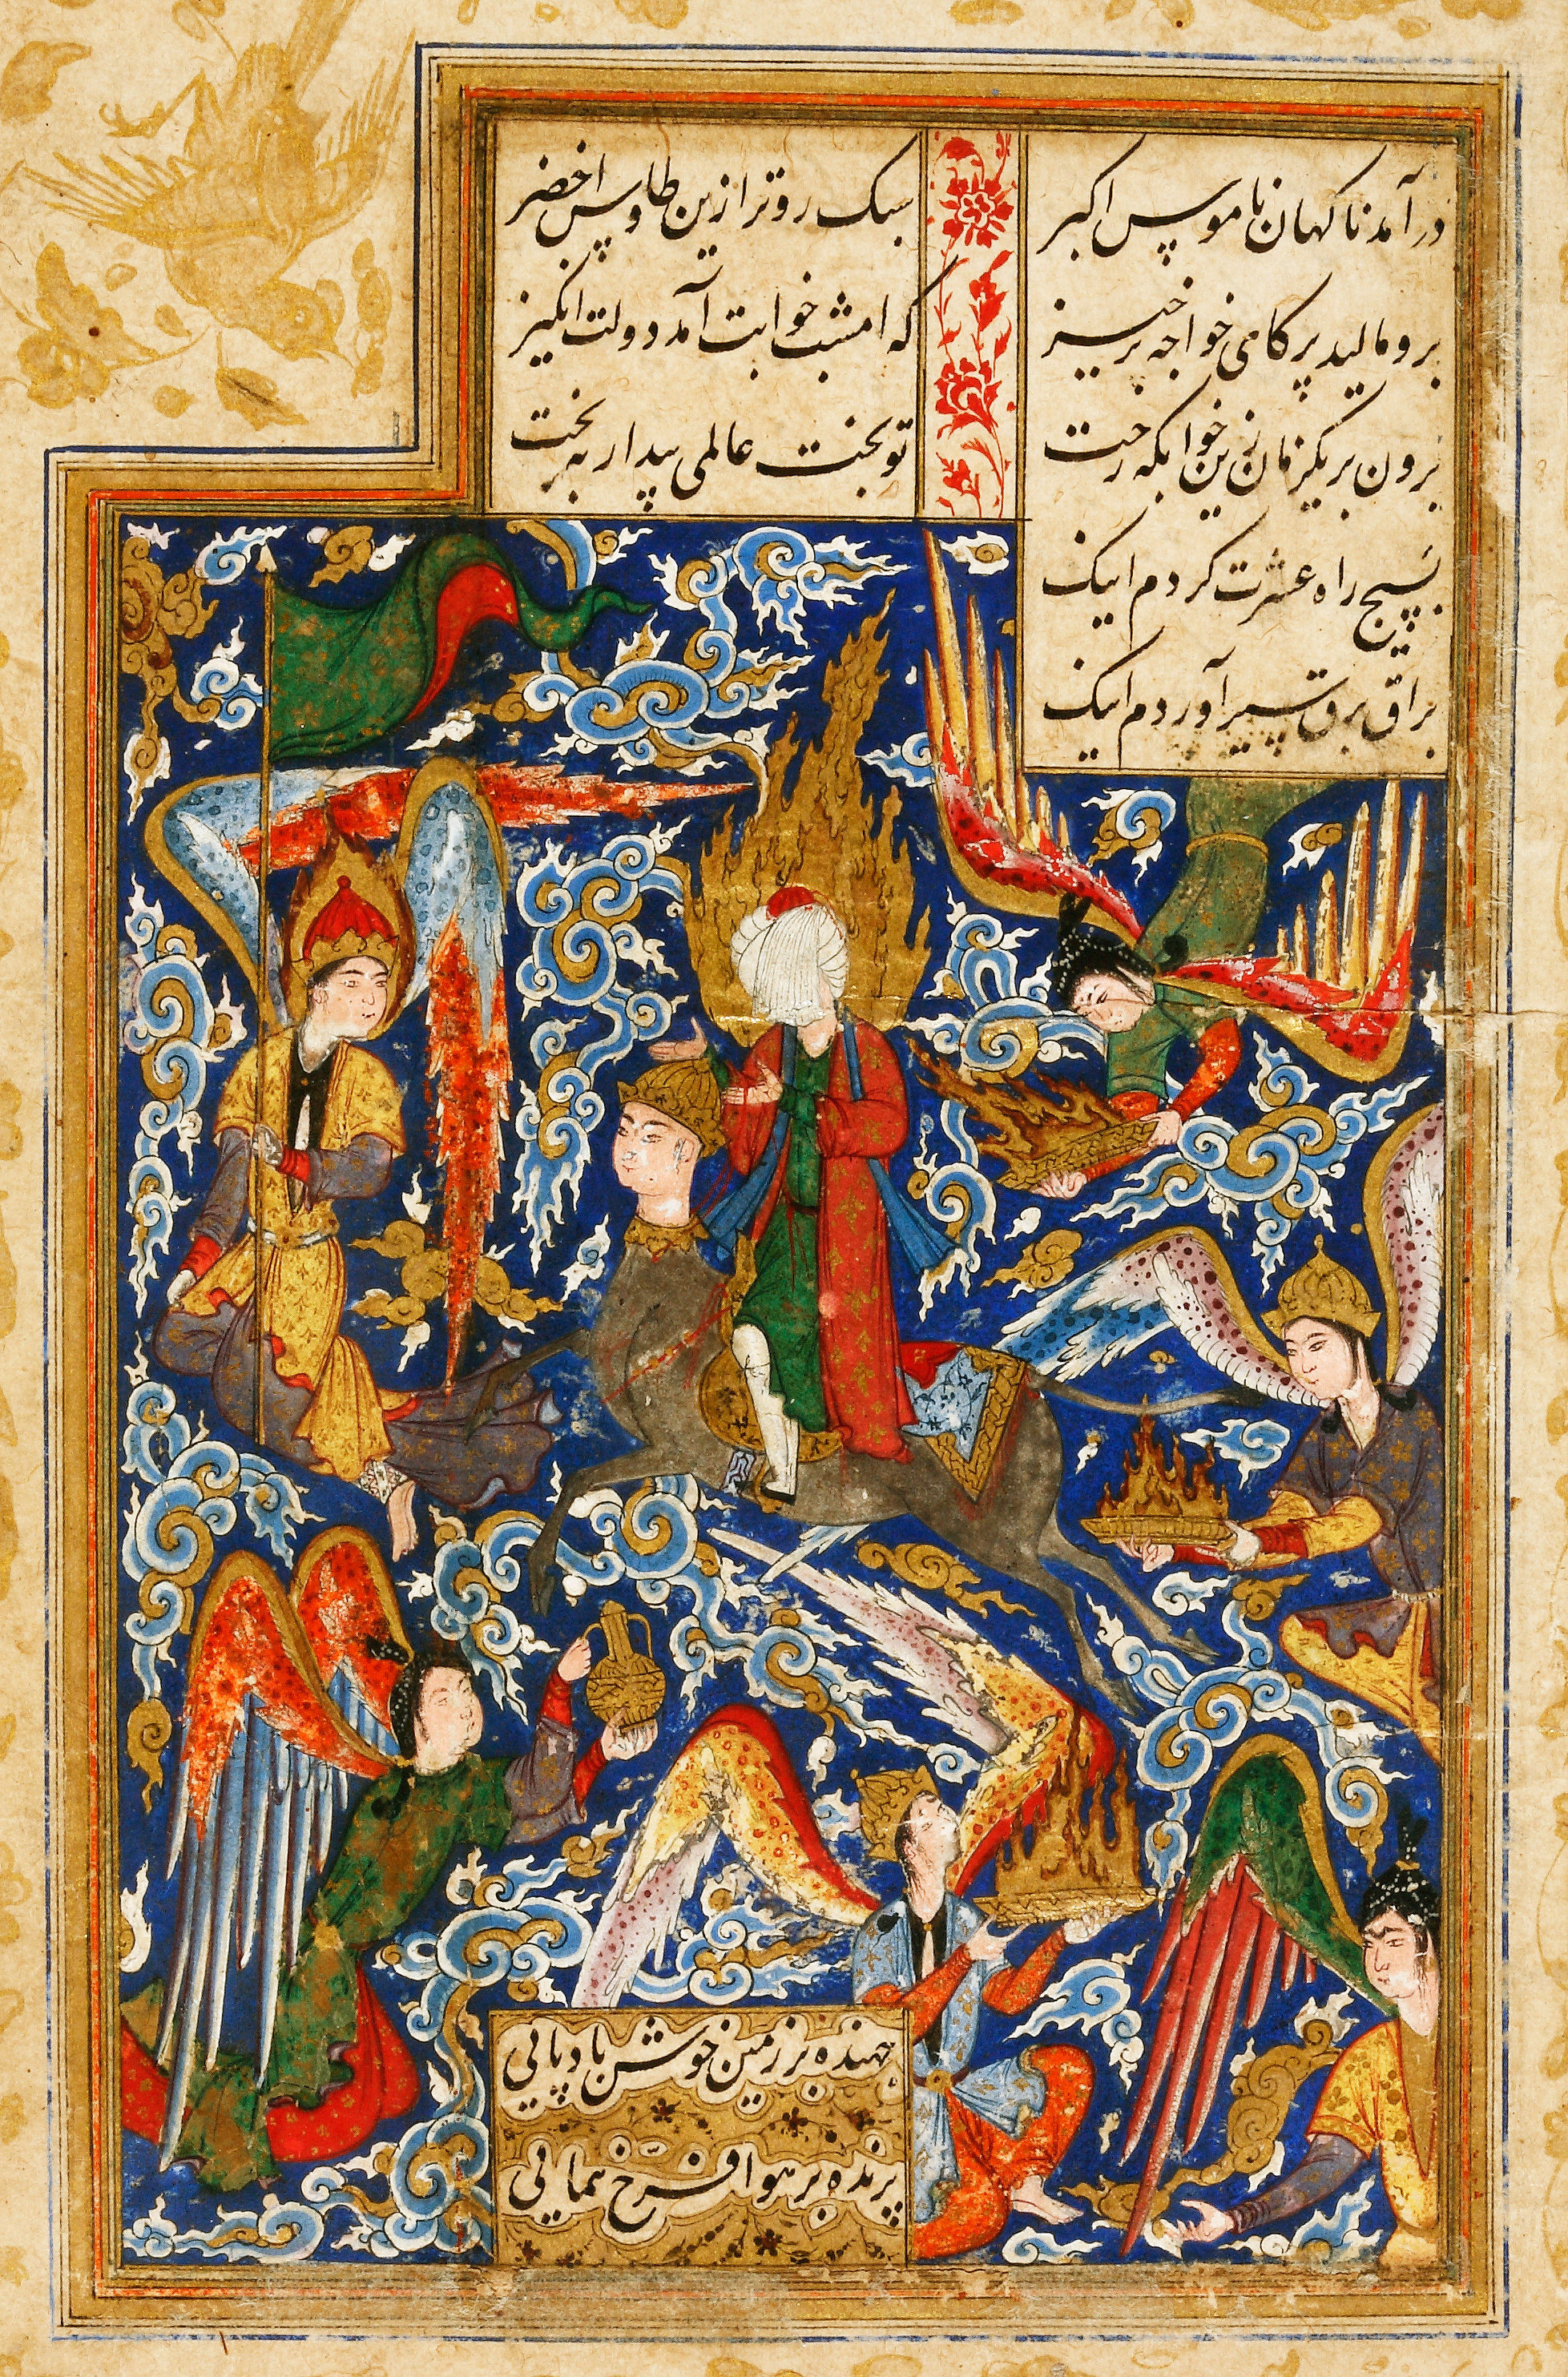 درآمد ناکهان ناموس اکبر سبک روتر ازین طاوس اخضر
برو مالید پر کای خواجه برخیز که امشب خوابت آمد دولت انکیز
برون بر یکزمان زین خوابکه رخت تو بخت عالمی بیدار به بخت
بسیچ راه عشرت کردم اینک
براق برق سیر آوردم اینک
جهنده بر زمین خوش بادپایی
پرنده بر هوا فرخ همایی